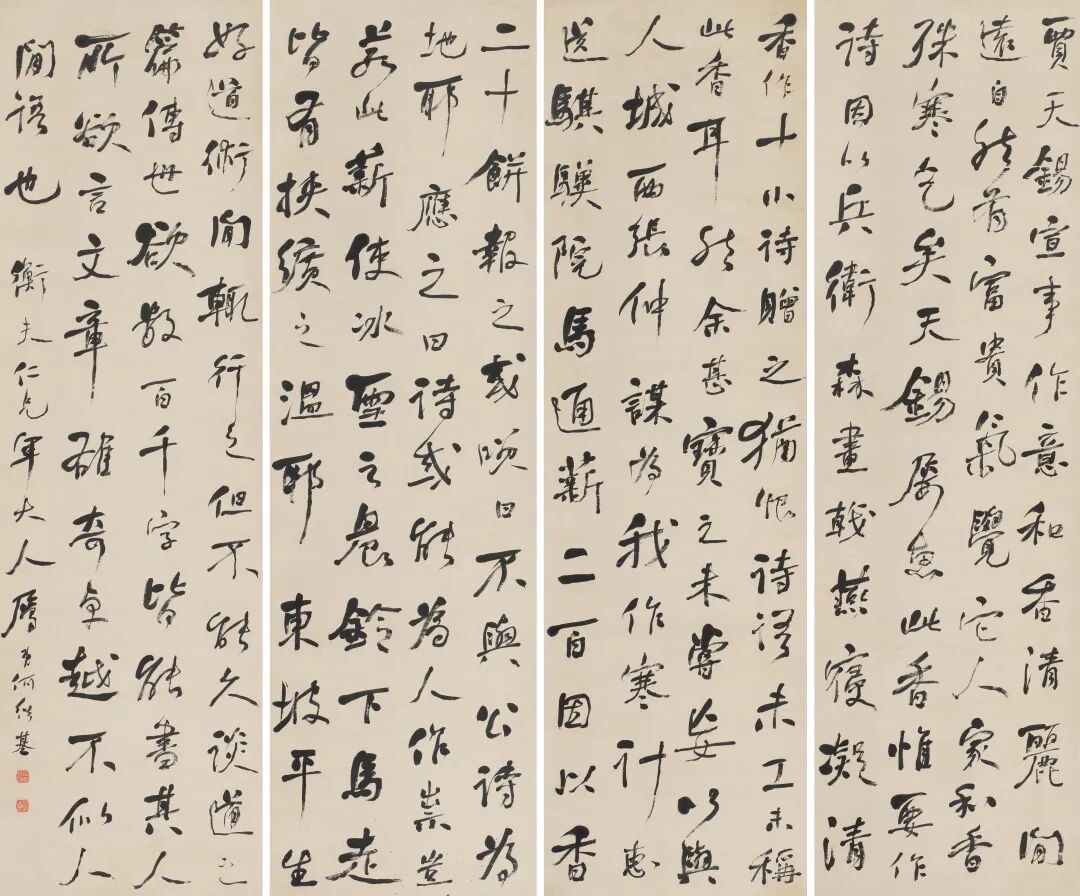 賈天錫宣事作意和香清麗閒
遠自然有富貴氣覺它人家和香
殊寒乞矣天錫屢惠此香惟要作
詩因以兵衛森畫戟燕寢凝清
香作十小詩贈之猶恨詩語未工未稱
此香耳然余甚寶之未嘗妄以與
人城西張仲謀為我作寒計惠
送騏驥院馬通薪二百因以香
二十餅報之或咲曰不與公詩為
地耶應之曰詩或能為人作祟豈
若此薪使冰雪之晨鈴下馬走
皆有挾纊之溫耶東坡平生
好道術聞輒行之但不能久談道之
篇傳世欲數百千字皆能書其人
所欲言文章雄奇卓越不似人
間語也 衡夫仁兄年大人屬 弟何紹基